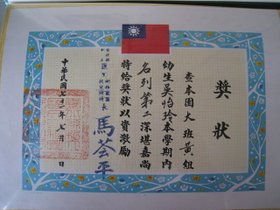 獎狀
查本園大班黃組
幼生吳怡玲本學期內
名列第二深堪嘉尚
特給獎狀以資獎勵
長 馬荟平
中華民國七十一年七月 日